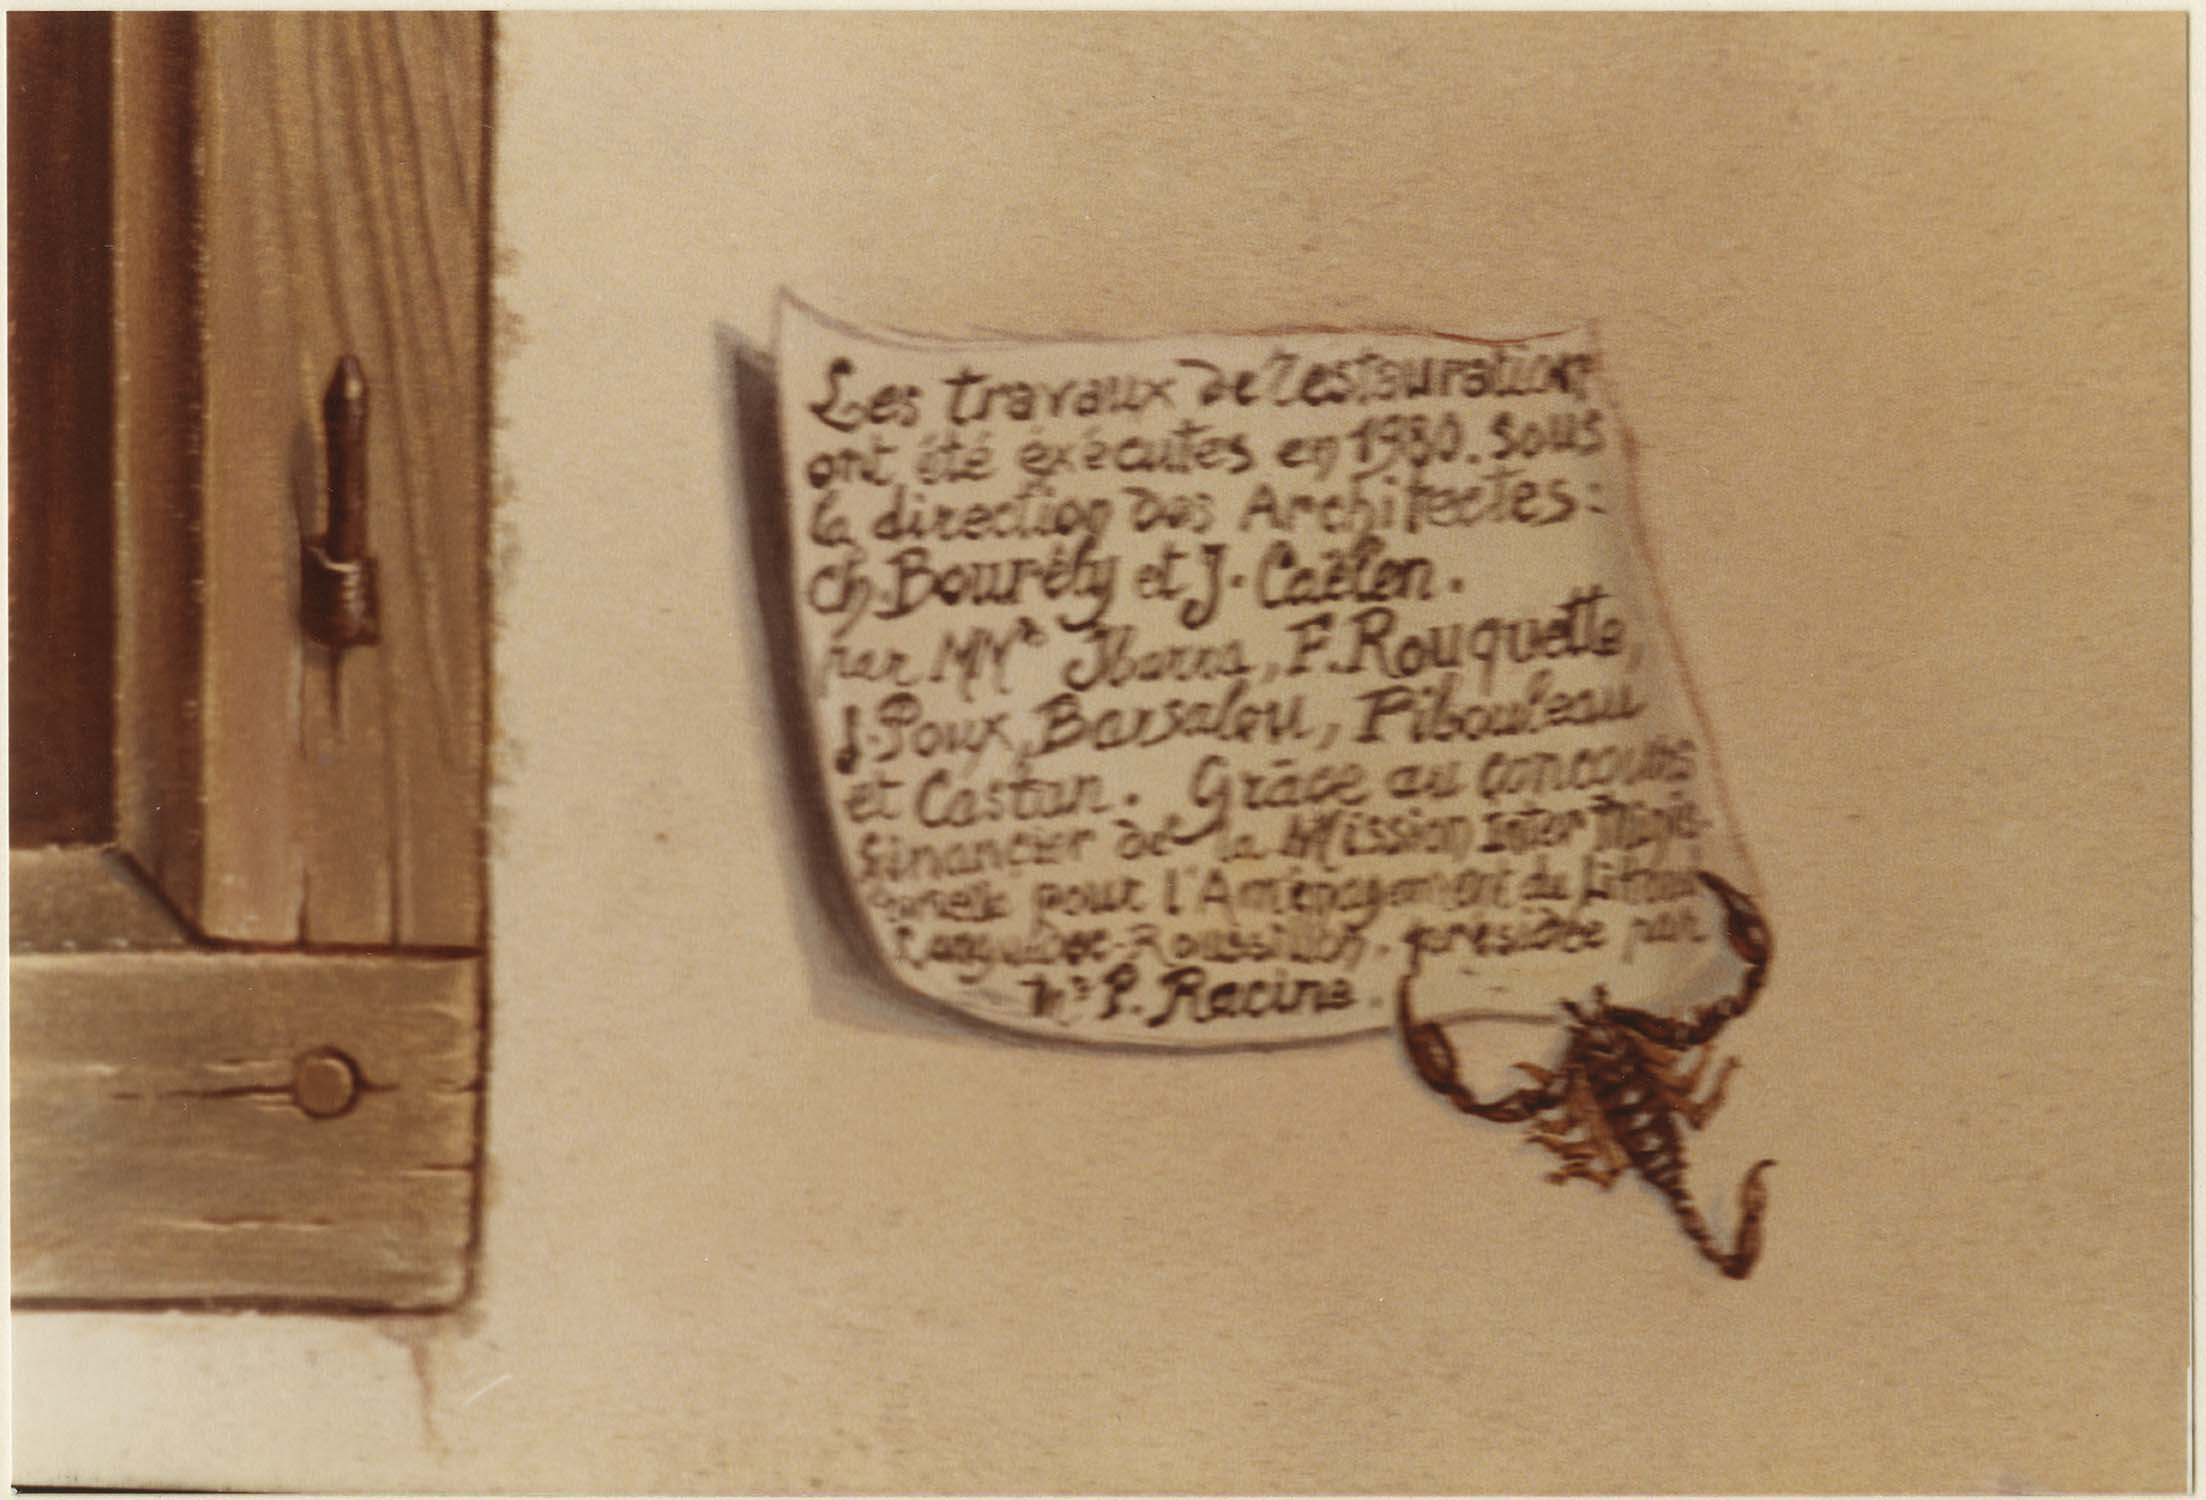 Les travaux de restauration
ont été éxécutés en 1980. sous
la direction des Architectes:
ch. Bourély et J. Caëlen.
par MMrs Ibarra, F. Rouquette,
J. Poux, Barsalou, Pibouleau
et Castan. Grâce au concours
financier de la Mission Inter Minis-
térielle pour l'Aménagement du Littoral
Languedoc-Roussillon. présidée par
Mr P. Racine.